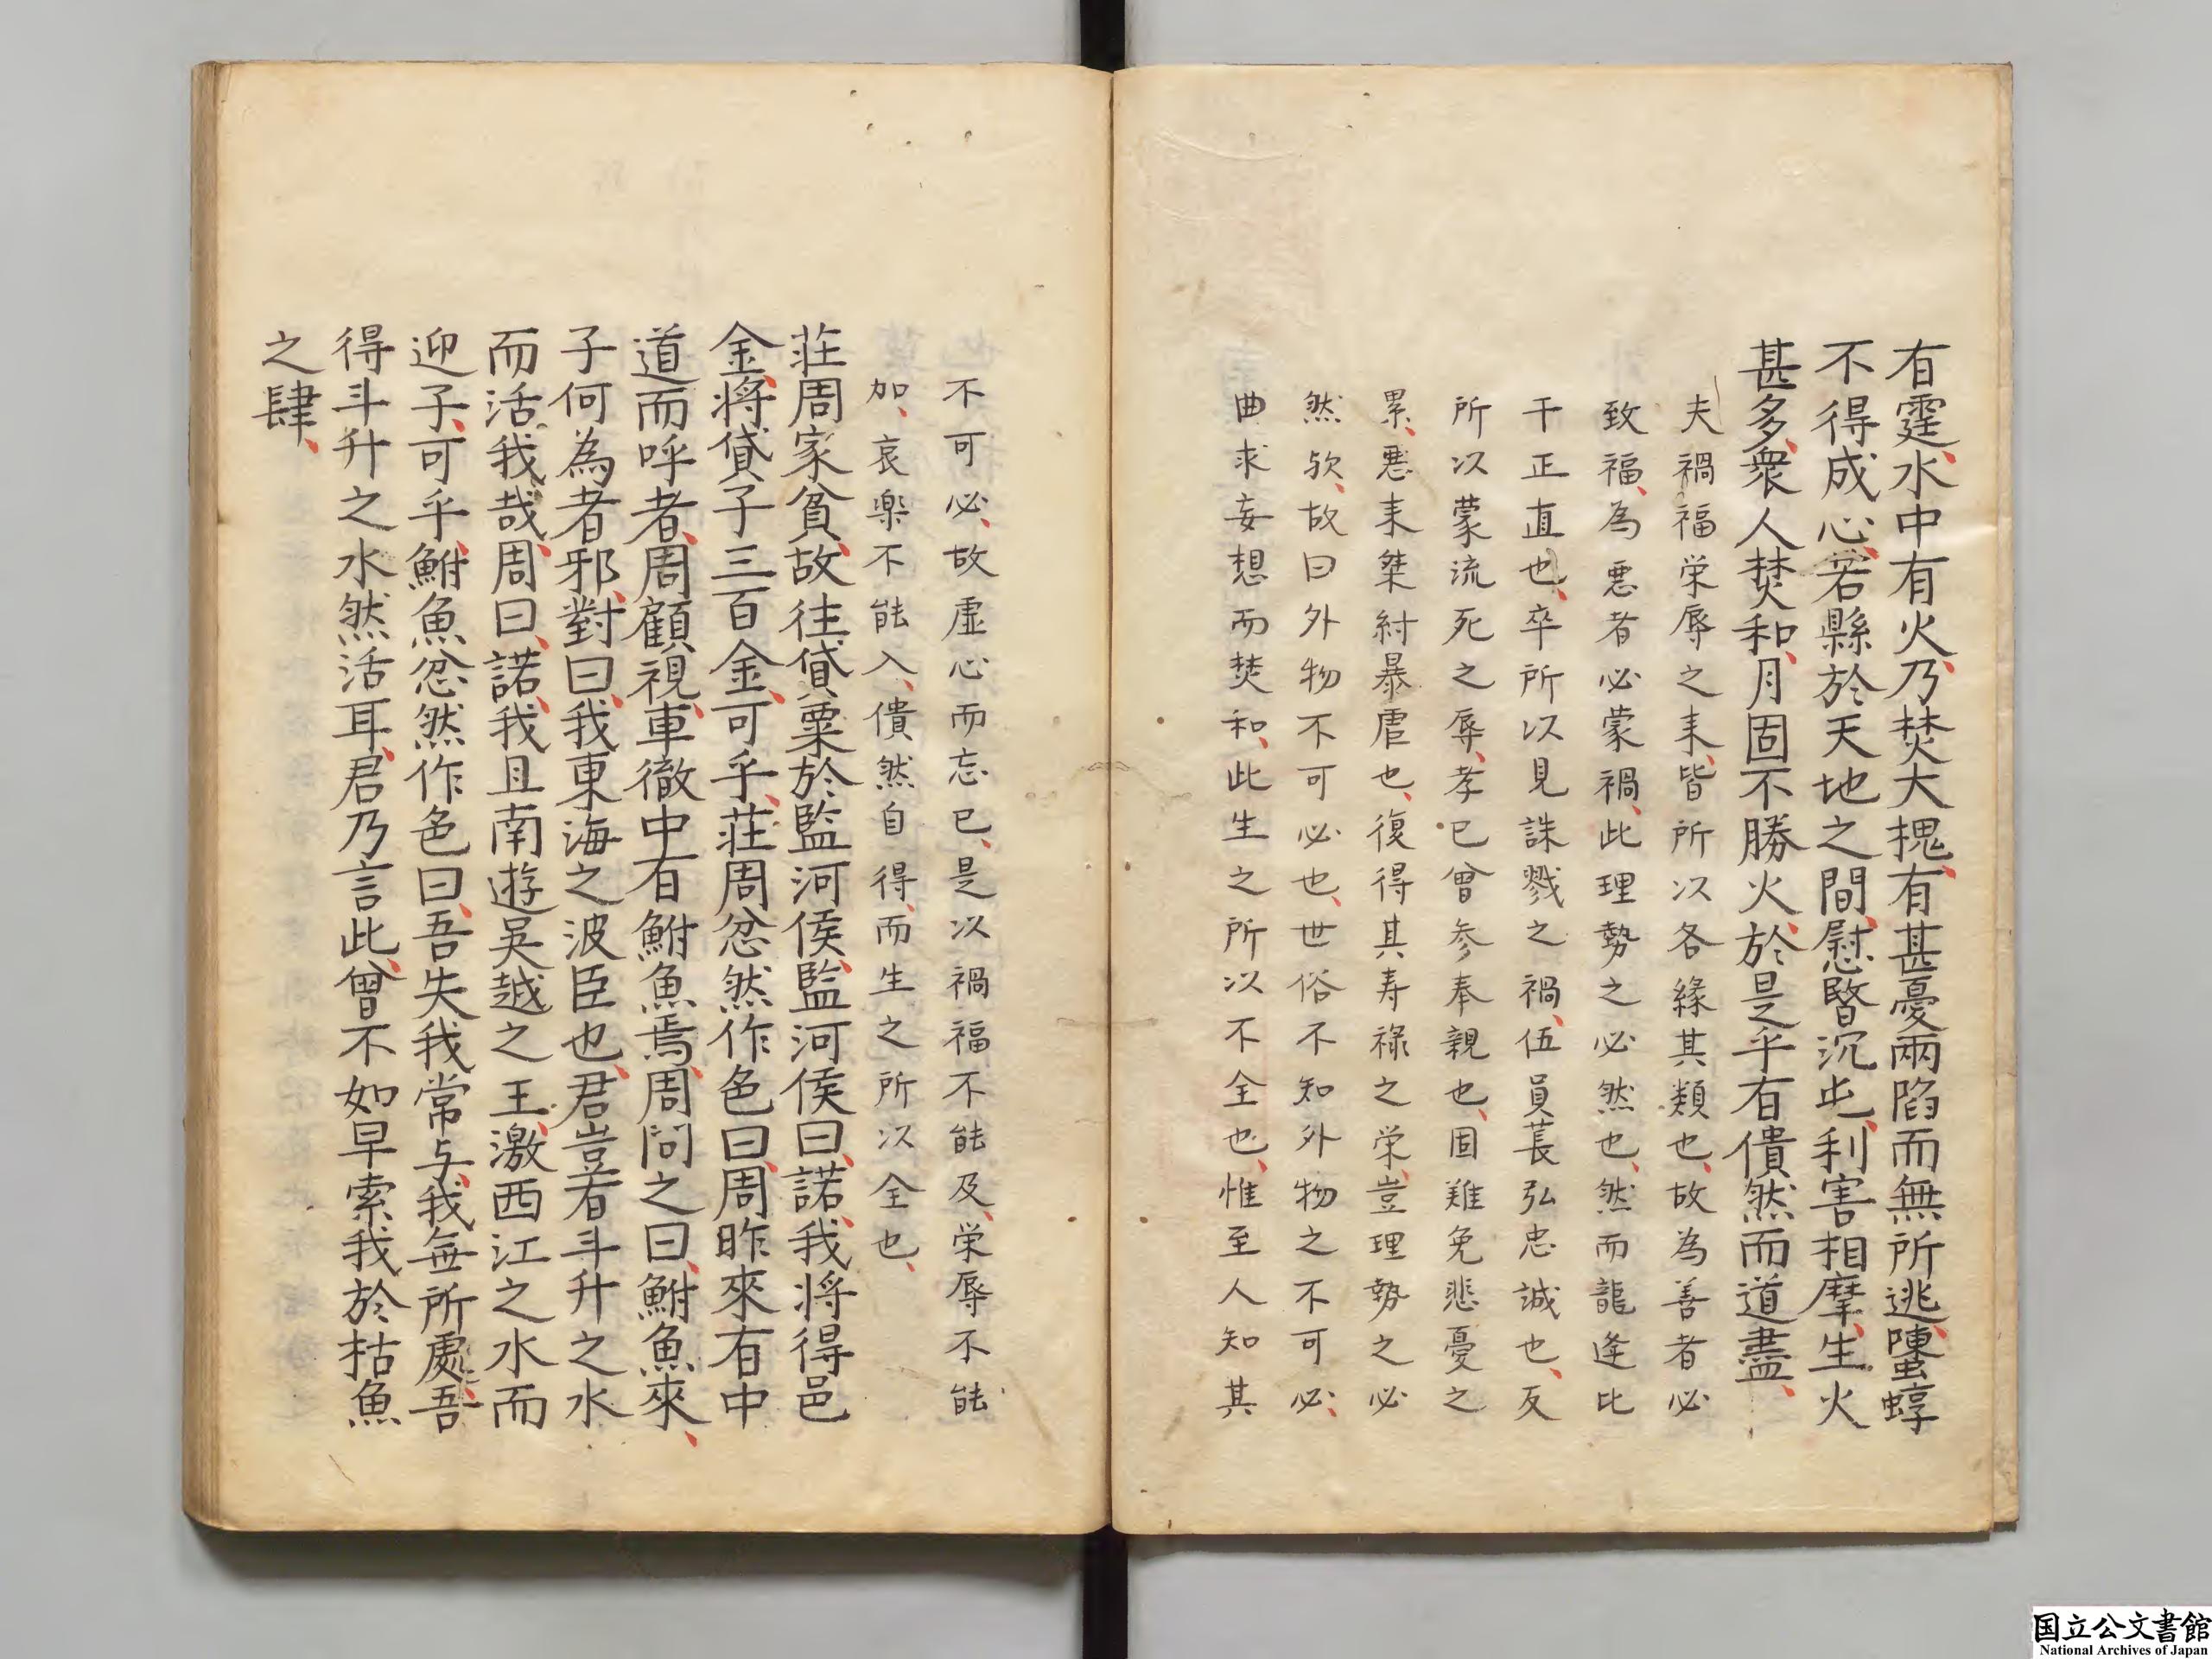 有霆水中有火乃焚大槐有甚憂兩陷而無所逃䗞蜳
不得成心若縣於天地之間慰暋沉屯利害相摩生火
甚多衆人焚和月固不勝火於是乎有僓然而道盡
夫禍福栄辱之来皆所以各緣其類也故為善者必
致福為悪者必蒙禍此理勢之必然也然而龍逄比
干正直也卒所以見誅戮之禍伍員萇弘忠誠也反
所以蒙流死之辱孝已曾参奉親也固難免悲憂之
累悪来桀紂暴虐也復得其寿禄之栄豈理勢之必
然欤故曰外物不可必也世俗不知外物之不可必
曲求妄想而焚和此生之所以不全也惟至人知其
不可必故虚心而忘已是以禍福不能及栄辱不能
加哀楽不能入僓然自得而生之所以全也
莊周家貧故往貸粟於監河侯監河侯曰諾我將得邑
金將貸子三百金可乎莊周忿然作色曰周昨來有中
道而呼者周顧視車徹中有鮒魚焉周問之曰鮒魚來
子何為者邪對曰我東海之波臣也君豈有斗升之水
而活我哉周曰諾我且南遊吳越之王激西江之水而
迎子可乎鮒魚忿然作色曰吾失我常与我無所處吾
得斗升之水然活耳君乃言此曾不如早索我於枯魚
之肆
国立公文書館
National Archives of Japan